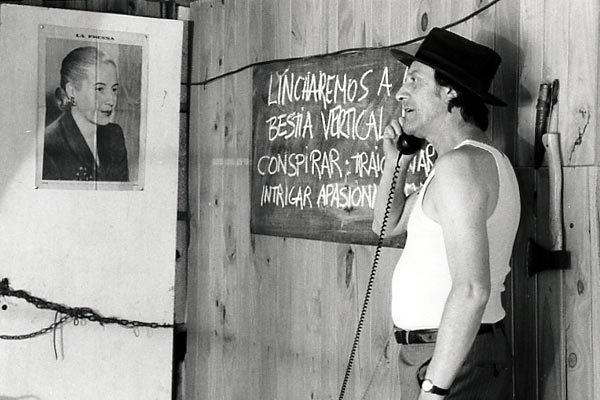 LA PRENSA
LYNCHAREMOS A
BESTIA VERTICAL
CONSPIRAR: TRAIC
INTRIGAR APASION